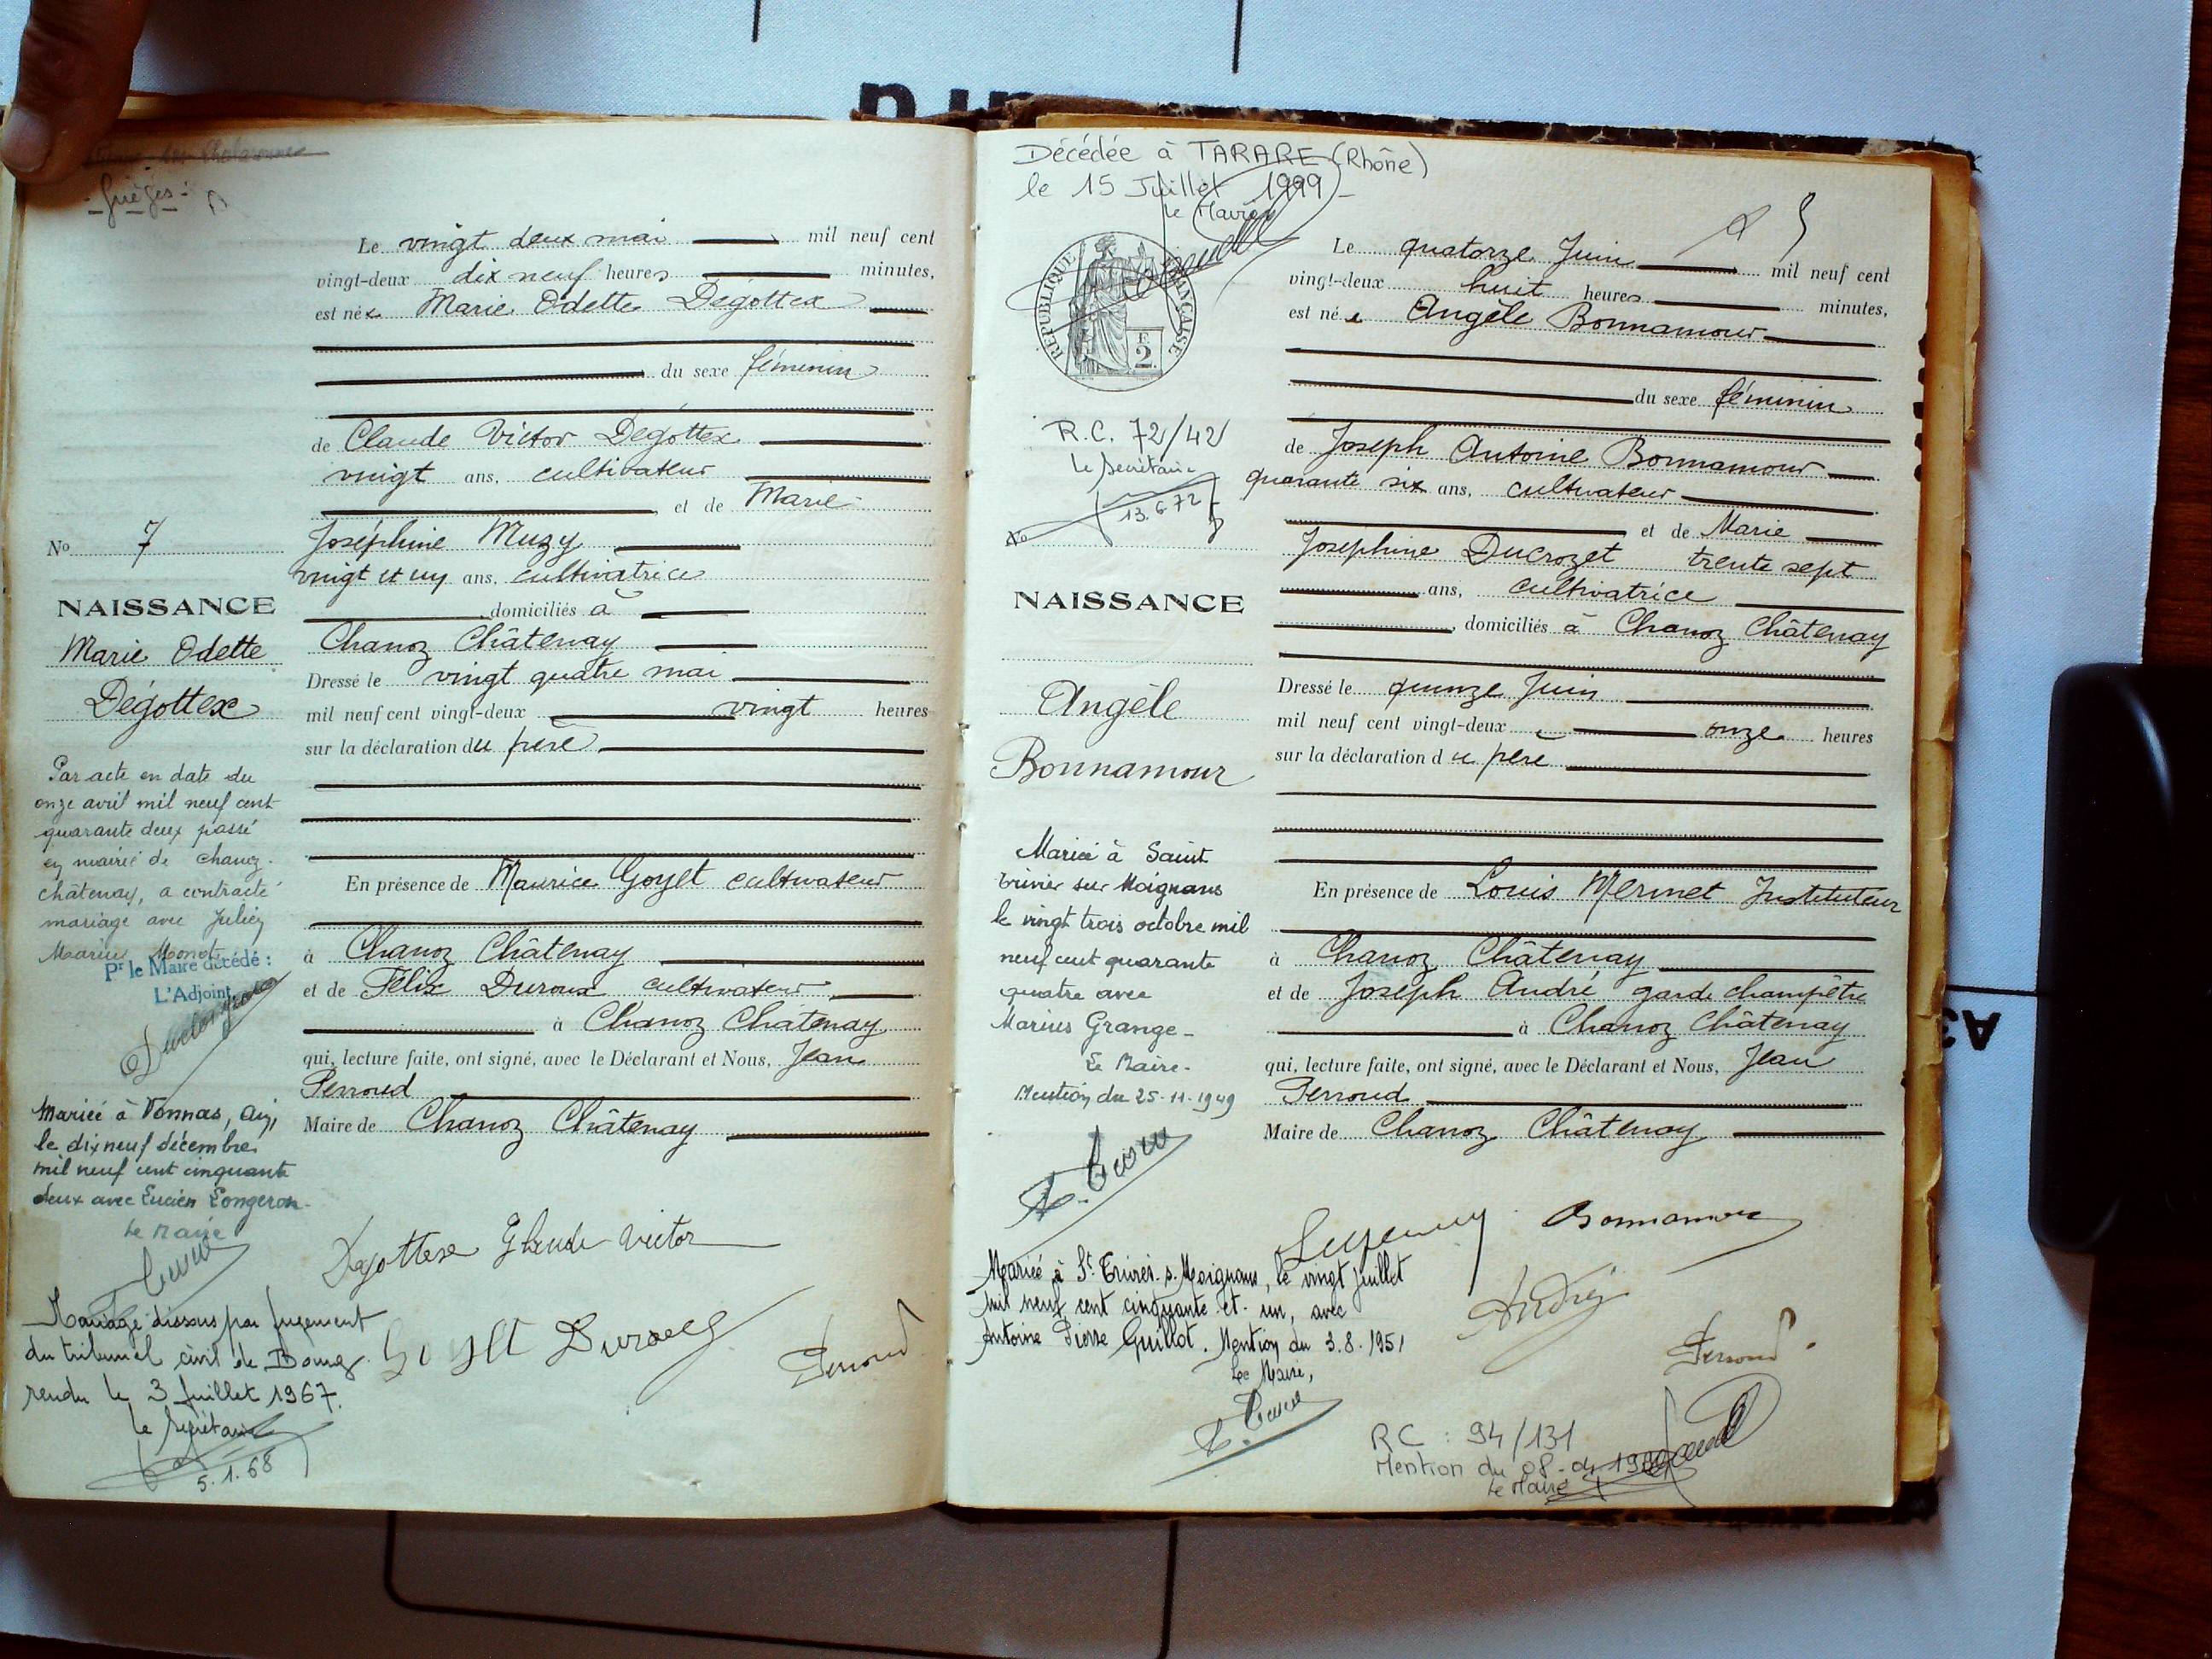 Grièges
Le vingt deux mai mil neuf cent
vingt-deux dix neuf heures minutes,
est née Marie Odette Dégottex
du sexe féminin
de Claude Victor Dégottex
vingt ans, cultivateur
, et de Marie
Joséphine Muzy
vingt et un ans, cultivatrice
domiciliés à
Chanoz Châtenay
Dressé le vingt quatre mai
mil neuf cent vingt-deux vingt heures
sur la déclaration du père
En présence de Maurice Goyet cultivateur
à Chanoz Châtenay
et de Félix Duroux cultivateur
à Chanoz Châtenay
qui, lecture faite, ont signé, avec le Déclarant et Nous, Jean
Perroud
Maire de Chanoz Châtenay
Dégottex Claude Victor
Goyet Duroux
Perroud
No 7
NAISSANCE
Marie Odette
Dégottex
Par acte en date du
onze avril mil neuf cent
quarante deux passé
en mairie de Chanoz-
Châtenay, a contracté
mariage avec Julien
Marius Monot
Pr le Maire décédé :
L'Adjoint
Mariée à Vonnas, Ain,
le dix neuf décembre
mil neuf cent cinquante
deux avec Lucien Longeron.
Le Maire
Mariage dissous par jugement
du tribunal civil de Bourg
rendu le 3 juillet 1967.
Le Secrétaire
5.1.68
Décédée à TARARE (Rhône)
le 15 Juillet 1999
Le Maire
RÉPUBLIQUE FRANÇAISE
F
2
R.C. 72/42
Le Secrétaire
13.6.72
No
NAISSANCE
Angèle
Bonnamour
Mariée à Saint
Trivier sur Moignans
le vingt trois octobre mil
neuf cent quarante
quatre avec
Marius Grange-
Le Maire-
Mention du 25-11-1949
Le quatorze Juin mil neuf cent
vingt-deux huit heures minutes,
est née Angèle Bonnamour
du sexe féminin
de Joseph Antoine Bonnamour
quarante six ans, cultivateur
et de Marie
Joséphine Ducrozet trente sept
ans, cultivatrice
, domiciliés à Chanoz Châtenay
Dressé le quinze Juin
mil neuf cent vingt-deux onze heures
sur la déclaration du père
En présence de Louis Mermet Instituteur
à Chanoz Châtenay
et de Joseph André garde champêtre
à Chanoz Châtenay
qui, lecture faite, ont signé, avec le Déclarant et Nous, Jean
Perroud
Maire de Chanoz Châtenay
Bonnamour
André
Perroud
Mariée à St. Trivier. s. Moignans, le vingt juillet
mil neuf cent cinquante et un, avec
Antoine Pierre Guillot. Mention du 3.8.1951
Le Maire,
RC : 94/131
Mention du 08
Le Maire
A3